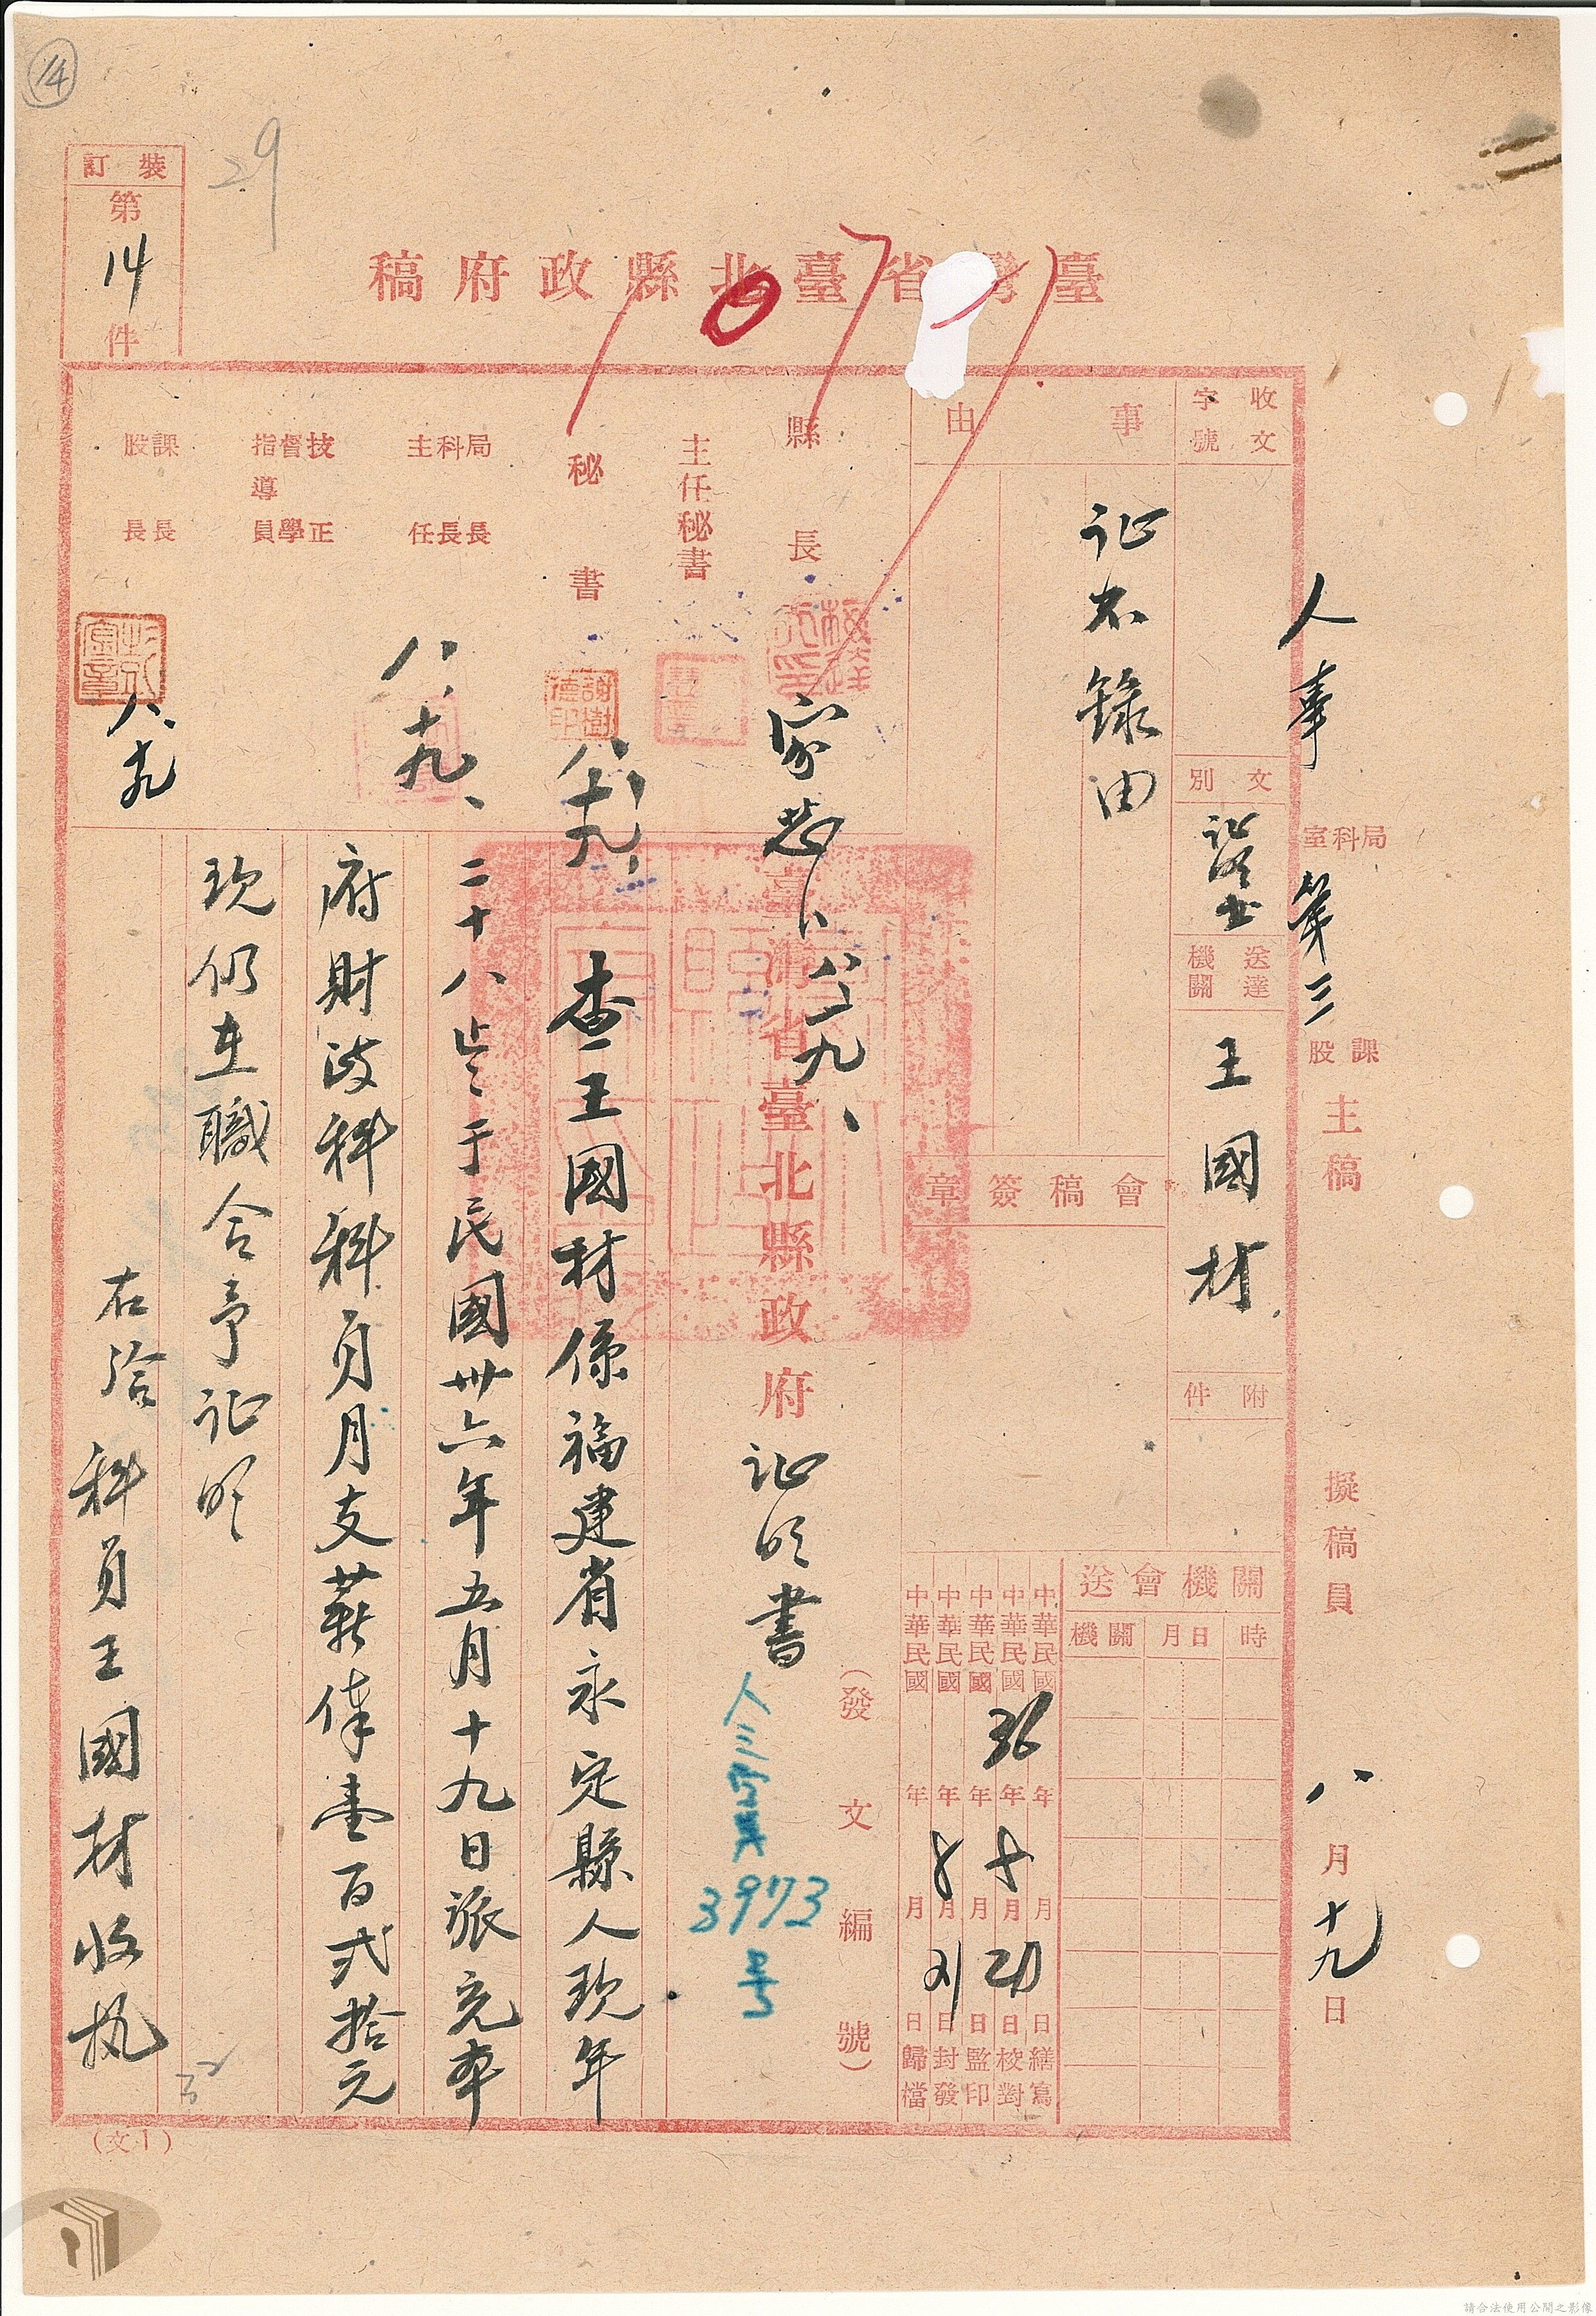 14
29
裝訂
第
14
件
臺灣省臺北縣政府稿
人事
局科室
第三
課股
主稿
擬稿員
八月十九日
收文
字號
文別
證明書
送達
機關
王國材
附件
事由
证不錄由
會稿簽章
送會機關
機關
月日
時
中華民國 年 月 日繕寫
中華民國36年 月 日校對
中華民國 年 月 日監印
中華民國 年 月 日封發
中華民國 年 月 日歸檔
縣長
八、十九、
主任秘書
秘書
謝樹德印
八、十九、
局科主
長長任
八、十九、
技督指導
正學員
課股
長長
八、十九
臺灣省臺北縣政府证明書
(發文編號)
3973号
查王國材係福建省永定縣人現年
二十八岁于民國卅六年五月十九日派充本
府財政科科員月支薪俸壹百弍拾元
現仍在職合予证明
右給 科員王國材收执
32
(文1)
請合法使用公開之影像